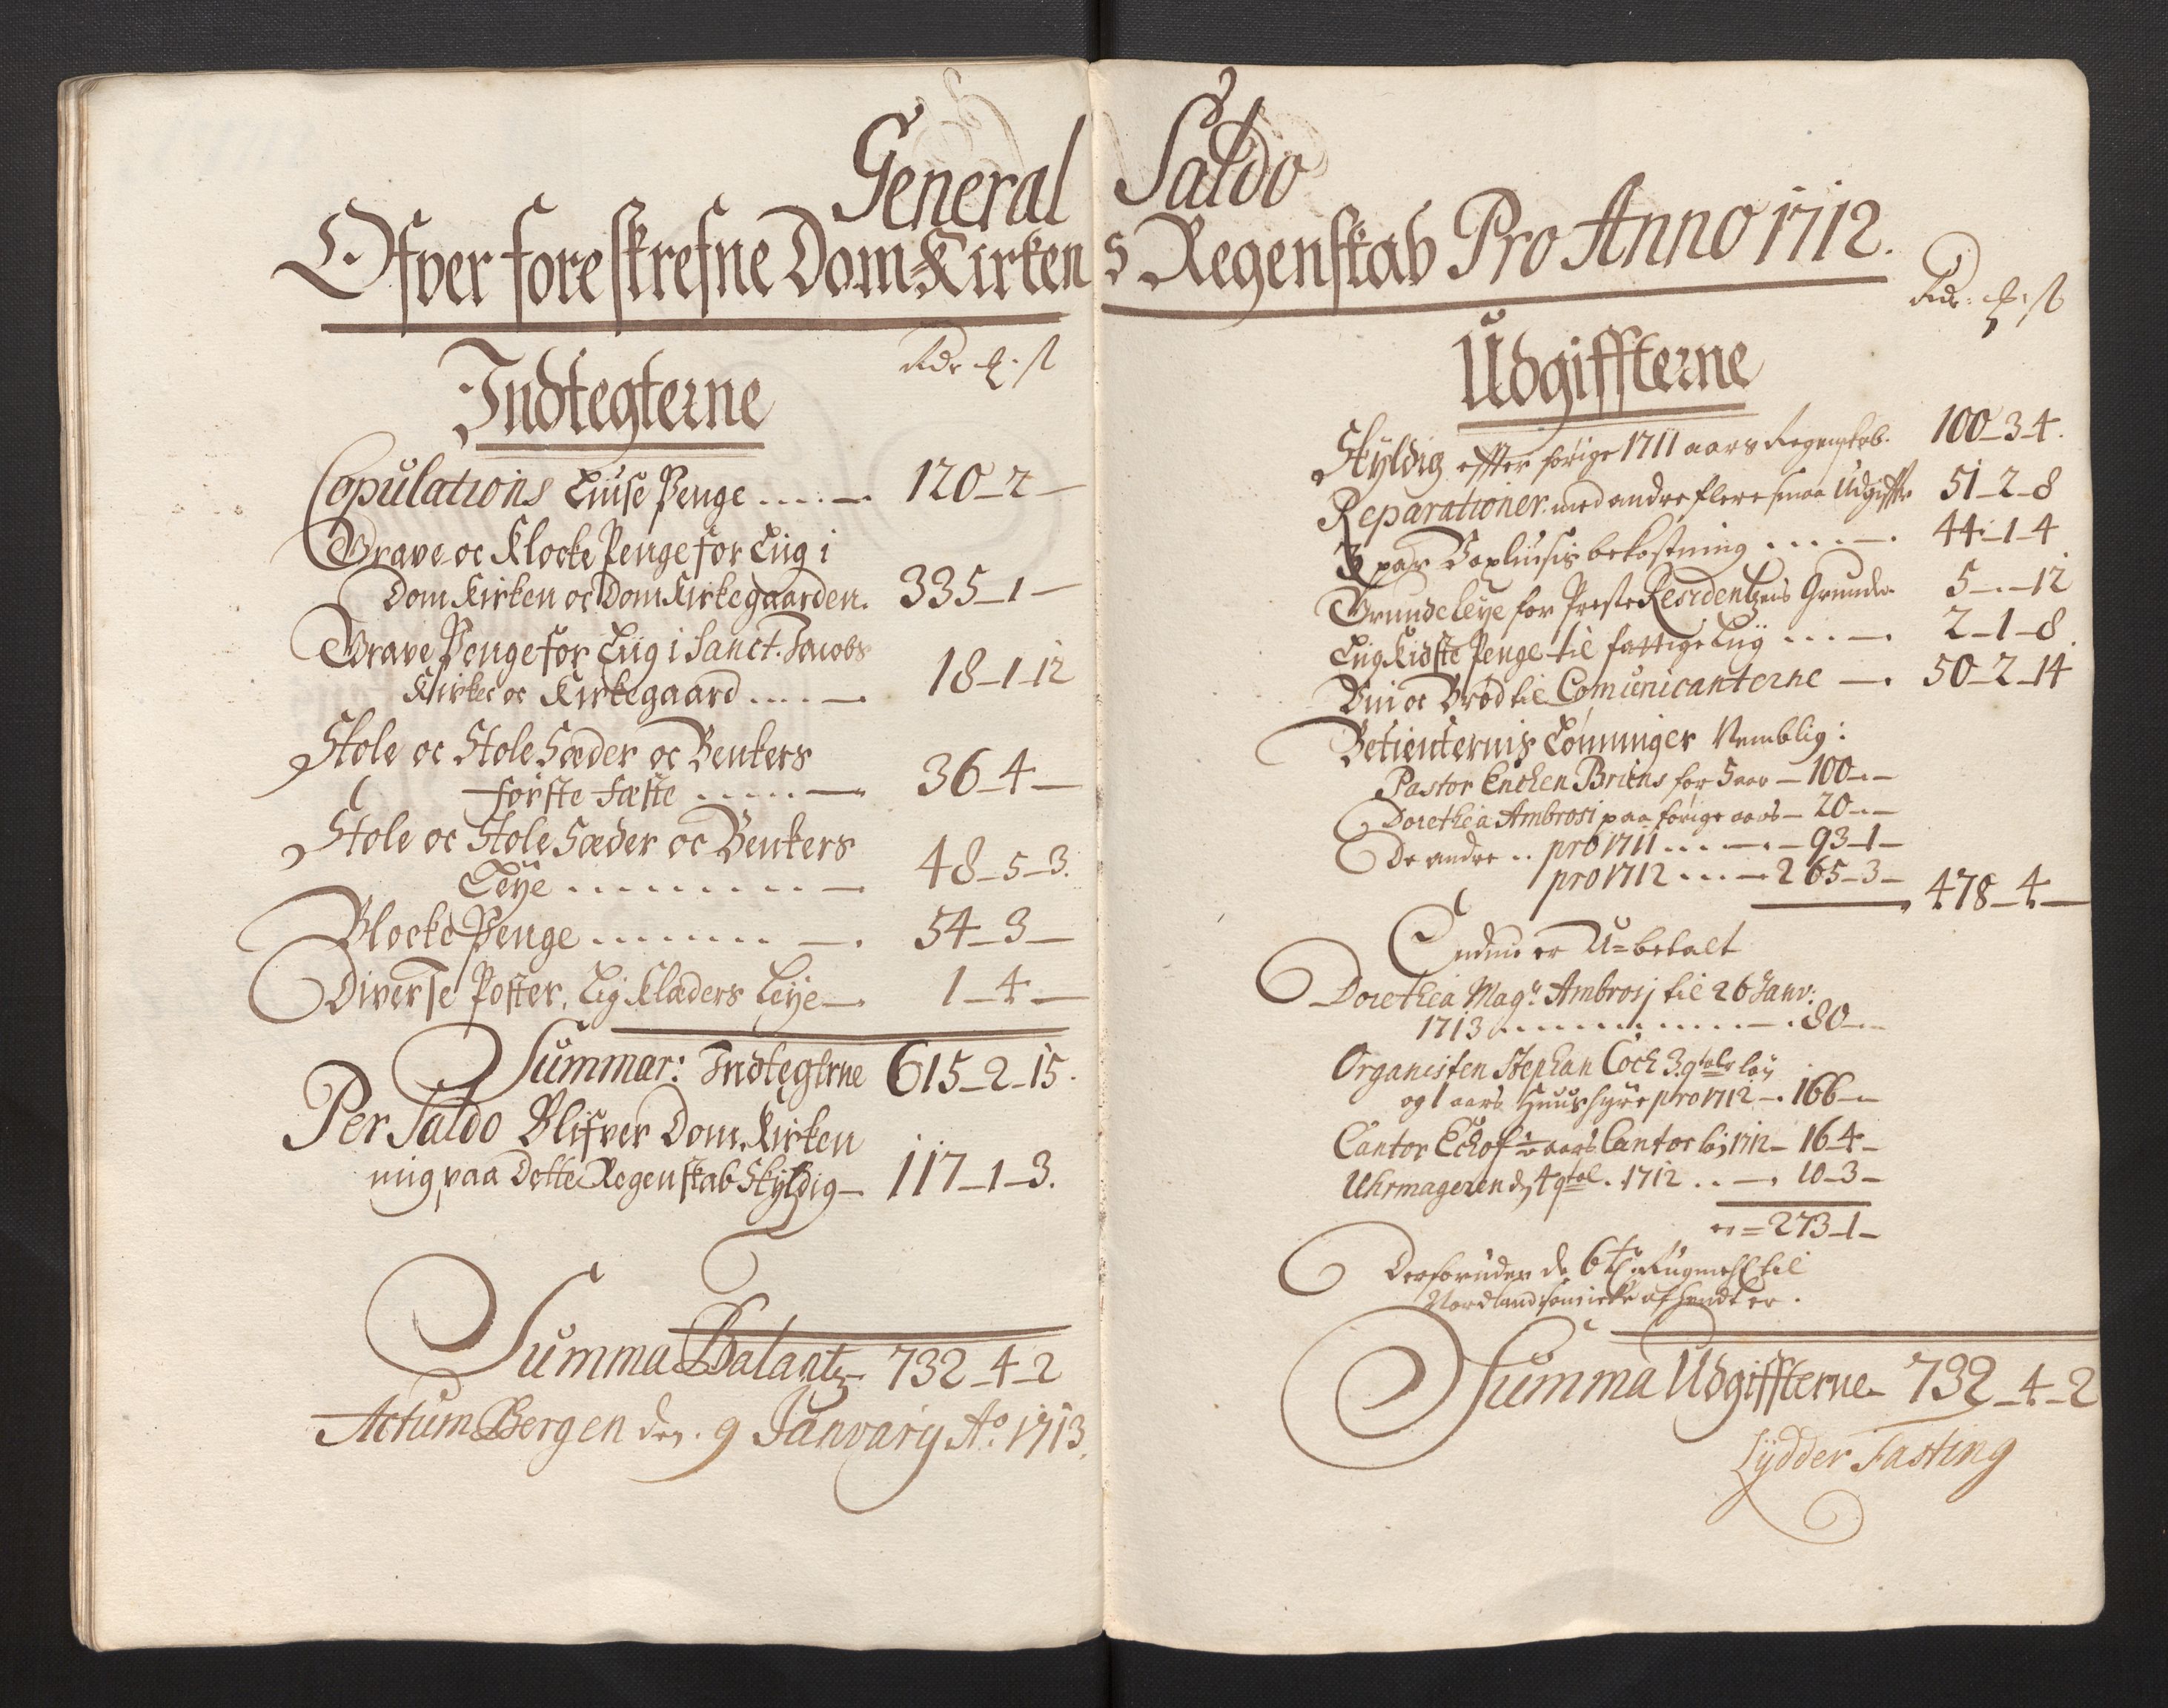 General Saldo
Ofver foreskrefne Dom-Kirkens Regenskab Pro Anno 1712.
Rdr ℳ ß
Indtegterne
Copulations Liuse Penge ..... 120 - 2 -
Grave oc Klocke Penge for Liig i
Dom Kirken oc Dom Kirkegaarden. 335 - 1 -
Grave Penge for Liig i Sanct. Jacobs
Kirke oc Kirkegaard ..... 18 - 1 - 12
Stole oc Stole Sæder oc Benkers
første Fæste ...... 36 - 4 -
Stole oc Stole Sæder oc Benkers
Leÿe ........ 48 - 5 - 3.
Blocke Penge ........ 54 - 3 -
Diverse Poster, Lig Klæders Leÿe 1 - 4 -
Summar: Indtegterne 615 - 2 - 15.
Per Saldo Blifver Dom Kirken
mig paa Dette Regenskab Skyldig 117 - 1 - 3.
Summa Balantz 732 - 4 - 2
Actum Bergen den. 9 Januarÿ Aº. 1713.
Rdr: ℳ: ß
Udgiffterne
Skyldig effter forige 1711 aars Regenskab. 100 - 3 - 4.
Reparationer med andre flere smaa Udgiffter 51 - 2 - 8
3 par Voxliusis bekostning ..... 44 - 1 - 4
Grundeleÿe for Præste Residentzens Grunde 5 - . - 12
Liig Kidste Penge til fattige Liig .... 2 - 1 - 8.
Viin oc Brød til Comunicanterne 50 - 2 - 14
Betienternis Lønninger Nemblig:
Pastor Enchen Briens for 5 aar - 100 - -
Dorethea Ambrosi paa forige aars - 20 - -
De andre .. pro 1711 ..... - 93 - 1 -
pro 1712 .... 265 - 3 - 478 - 4 -
Endnu er U=betalt
Dorethea Mag: Ambrosj til 26 Janv:
1713 .............. 80 - -
Organisten Stephan Coch 3 qtals løn
og 1 aars Huushyre pro 1712 - 166 - -
Cantor Echof ½ aars Cantor løn 1712 - 16 - 4 -
Uhrmageren dj 4 qtal. 1712 .. 10 - 3 -
er = 273 - 1 -
Desforuden de 6 t Rugmehl til
Nordland som icke afsendt er.
Summa Udgiffterne 732 - 4 - 2
Lÿdder Fasting